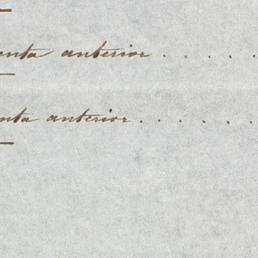 enta anterior . . . . .
nta anterior . . . . . .